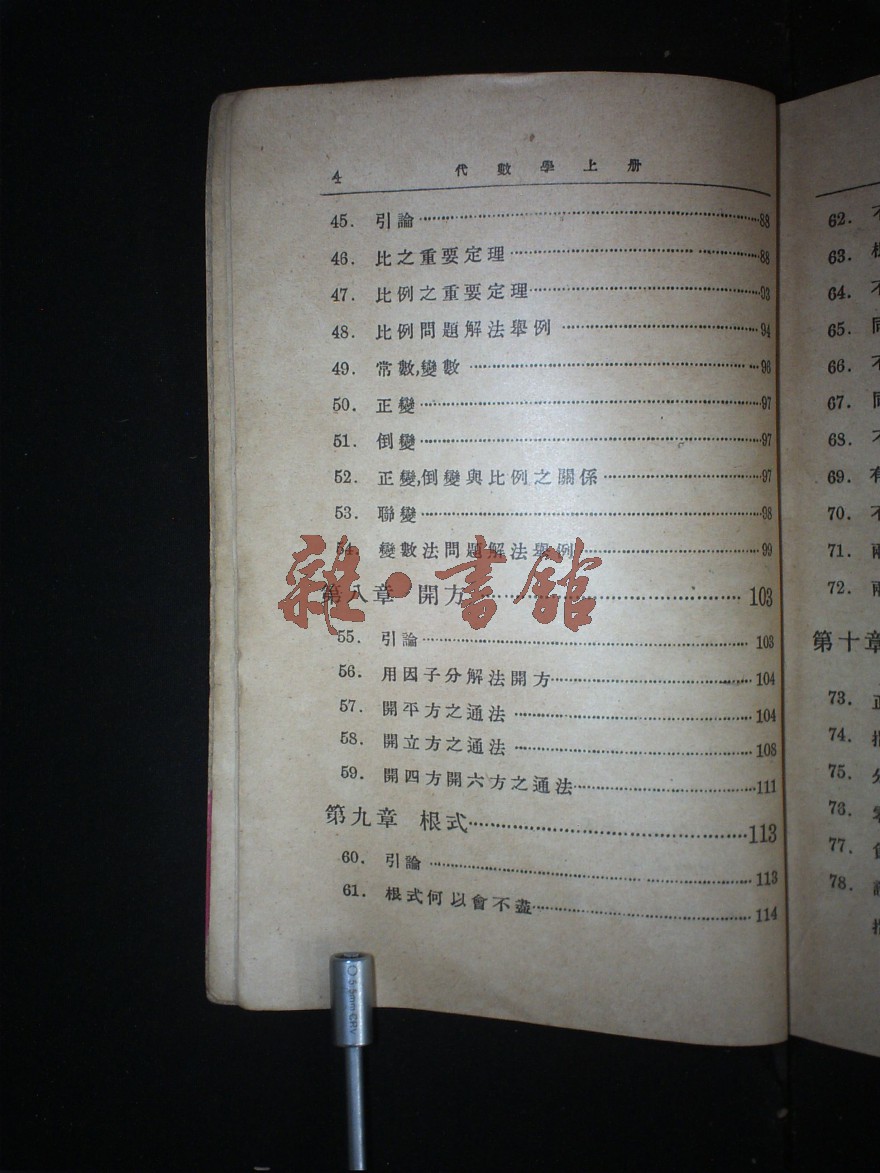 4 代數學上册
45. 引論 88
46. 比之重要定理 88
47. 比例之重要定理 93
48. 比例問題解法舉例 94
49. 常數,變數 96
50. 正變 97
51. 倒變 97
52. 正變,倒變與比例之關係 97
53. 聯變 98
54. 變數法問題解法舉例 99
第八章 開方 103
55. 引論 103
56. 用因子分解法開方 104
57. 開平方之通法 104
58. 開立方之通法 108
59. 開四方開六方之通法 111
第九章 根式 113
60. 引論 113
61. 根式何以會不盡 114
雜·書館
62. 不
63.
64. 不
65. 同
66. 不
67. 同
68. 不
69. 有
70. 不
71. 兩
72. 兩
第十章
73. 正
74. 指
75. 分
76. 零
77. 負
78.
指
5.5mm CRV